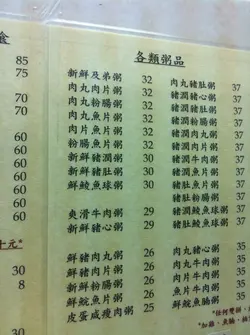 各類粥品
85
75
70
70
60
60
60
60
60
十元*
30
8
30
30
35
新鮮及弟粥 32
肉丸肉片粥 32
肉丸粉腸粥 32
肉丸魚片粥 32
肉片魚片粥 30
粉腸魚片粥 30
新鮮豬潤粥 30
新鮮豬肚粥 30
新鮮鯪魚球粥 30
爽滑牛肉粥 29
新鮮魚片粥 29
鮮豬肉丸粥 26
鮮豬肉片粥 26
新鮮粉腸粥 26
鮮鯇魚片粥 26
皮蛋咸瘦肉粥 25
肉丸豬肚粥 37
肉丸豬心粥 37
豬潤豬肚粥 37
豬潤粉腸粥 37
豬潤肉丸粥 37
豬潤肉片粥 37
豬潤牛肉粥 37
豬潤魚片粥 37
豬肚魚片粥 37
豬肚粉腸粥
豬潤鯪魚球粥 37
肉丸鯪魚球粥 37
肉丸豬心粥 35
肉丸牛肉粥 35
肉片牛肉粥 35
魚片牛肉粥 35
鮮鯇魚腩粥 35
*任何雙拼
*加雞、魚腩